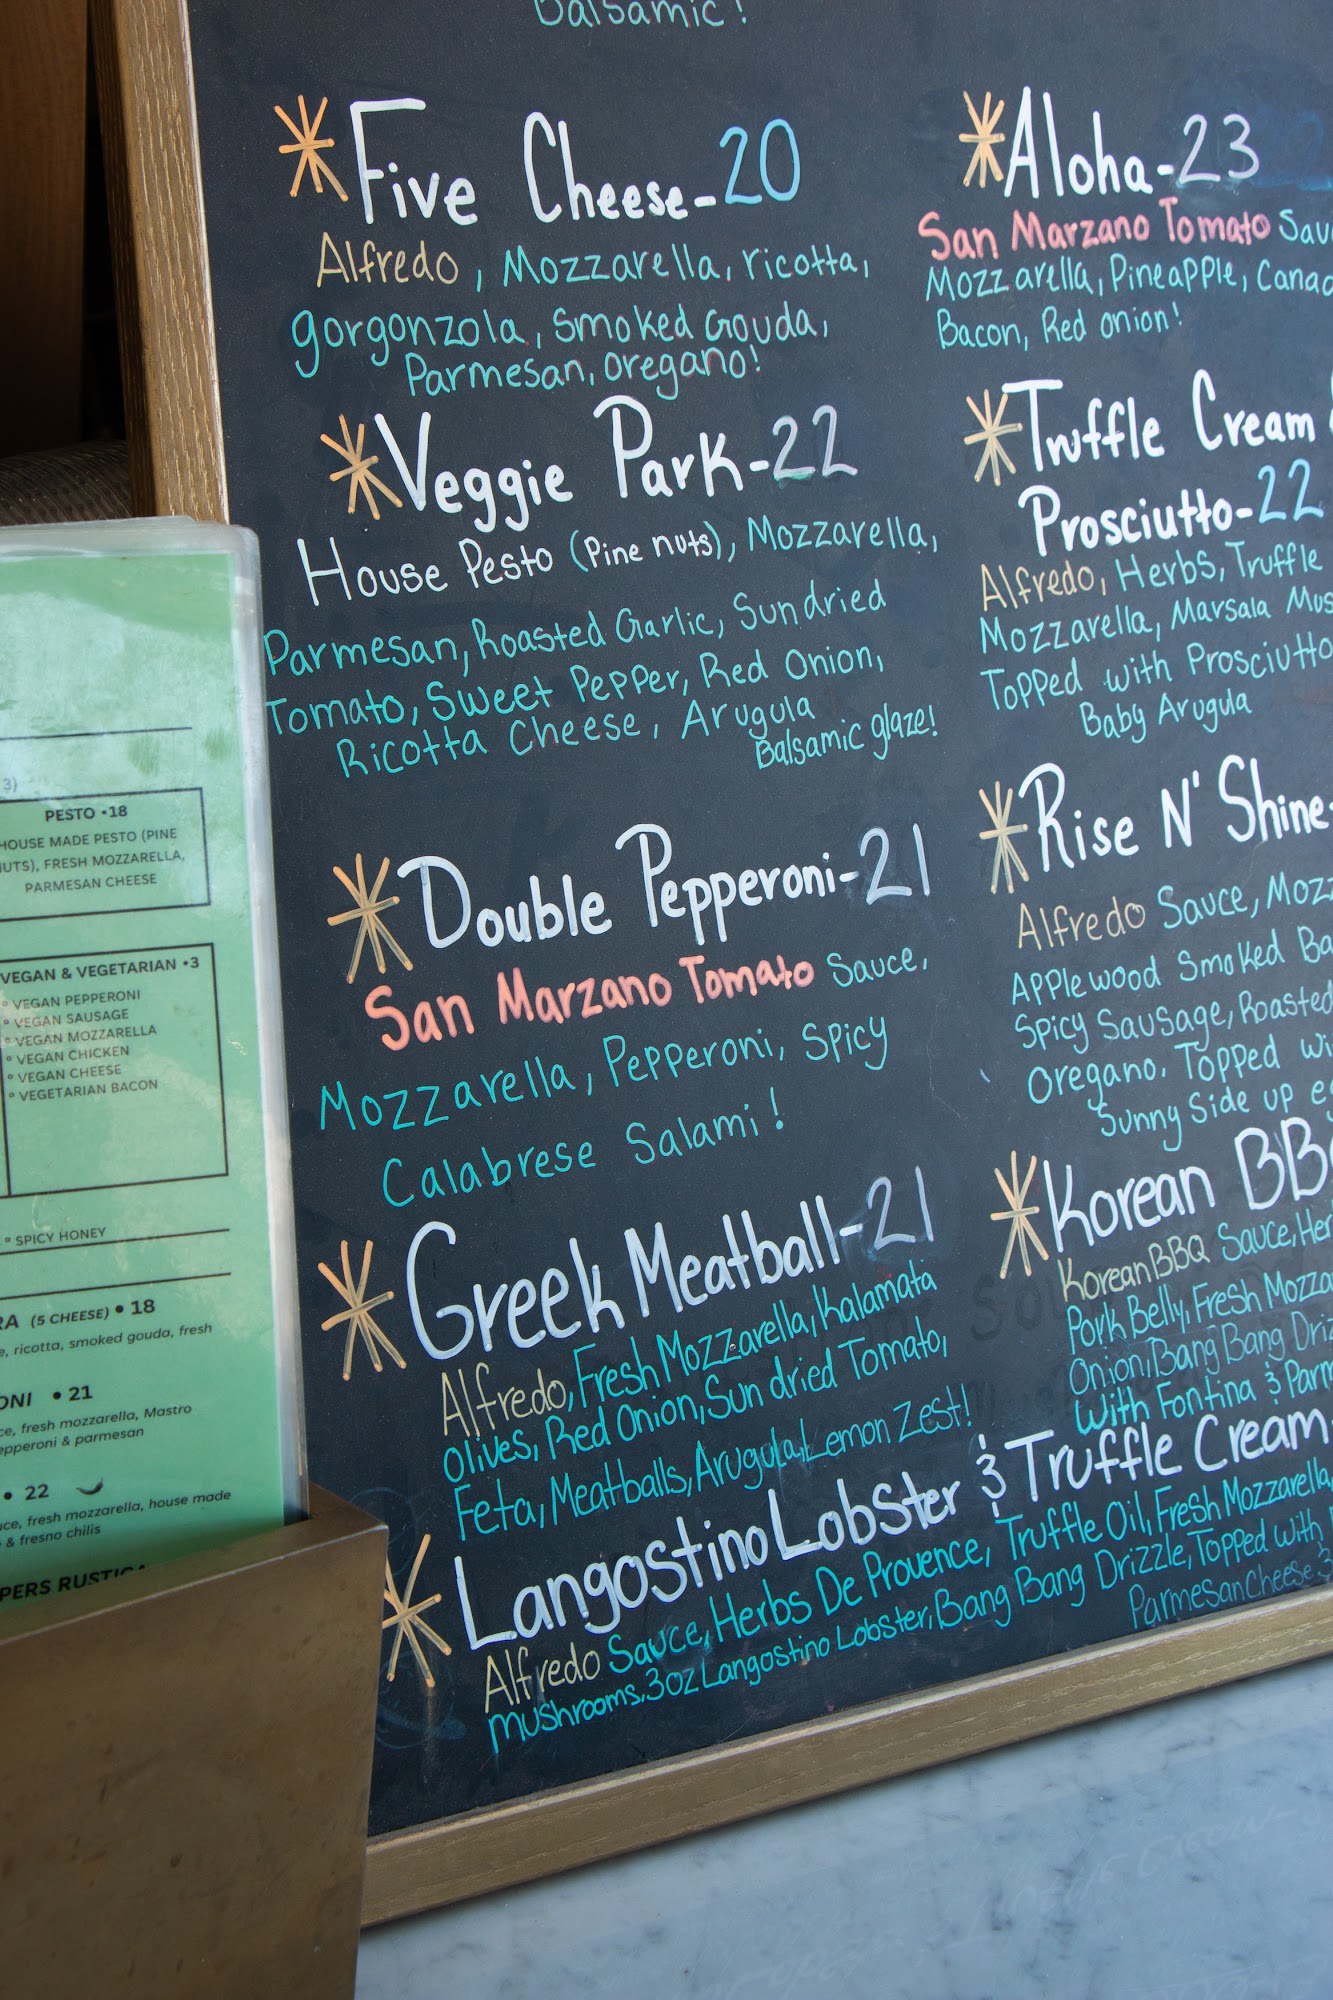 Balsamic!
Five Cheese-20
Alfredo, Mozzarella, ricotta,
gorgonzola, Smoked Gouda,
Parmesan, oregano!
Veggie Park-22
House Pesto (Pine nuts), Mozzarella,
Parmesan, Roasted Garlic, Sundried
Tomato, Sweet Pepper, Red Onion,
Ricotta Cheese, Arugula
Balsamic glaze!
Double Pepperoni-21
San Marzano Tomato Sauce,
Mozzarella, Pepperoni, Spicy
Calabrese Salami!
Greek Meatball-21
Alfredo, Fresh Mozzarella, Kalamata
Olives, Red Onion, Sun dried Tomato,
Feta, Meatballs, Arugula, Lemon Zest!
Langostino Lobster & Truffle Cream
Alfredo Sauce, Herbs De Provence, Truffle Oil, Fresh Mozzarella,
mushrooms, 3oz Langostino Lobster, Bang Bang Drizzle, Topped with
Parmesan Cheese &
Aloha-23
San Marzano Tomato Sau
Mozzarella, Pineapple, Canad
Bacon, Red onion!
Truffle Cream
Prosciutto-22
Alfredo, Herbs, Truffle
Mozzarella, Marsala Mus
Topped with Prosciutto
Baby Arugula
Rise N' Shine-
Alfredo Sauce, Mozz
Applewood Smoked Ba
Spicy Sausage, Roasted
Oregano. Topped wi
Sunny Side up eg
Korean BBQ
Korean BBQ Sauce, Her
Pork Belly, Fresh Mozza
Onion, Bang Bang Driz
with Fontina & Parm
3)
PESTO •18
HOUSE MADE PESTO (PINE
NUTS), FRESH MOZZARELLA,
PARMESAN CHEESE
VEGAN & VEGETARIAN •3
° VEGAN PEPPERONI
° VEGAN SAUSAGE
° VEGAN MOZZARELLA
° VEGAN CHICKEN
° VEGAN CHEESE
° VEGETARIAN BACON
° SPICY HONEY
RA (5 CHEESE) • 18
e, ricotta, smoked gouda, fresh
ONI • 21
ce, fresh mozzarella, Mastro
epperoni & parmesan
• 22
uce, fresh mozzarella, house made
& fresno chilis
PERS RUSTICA